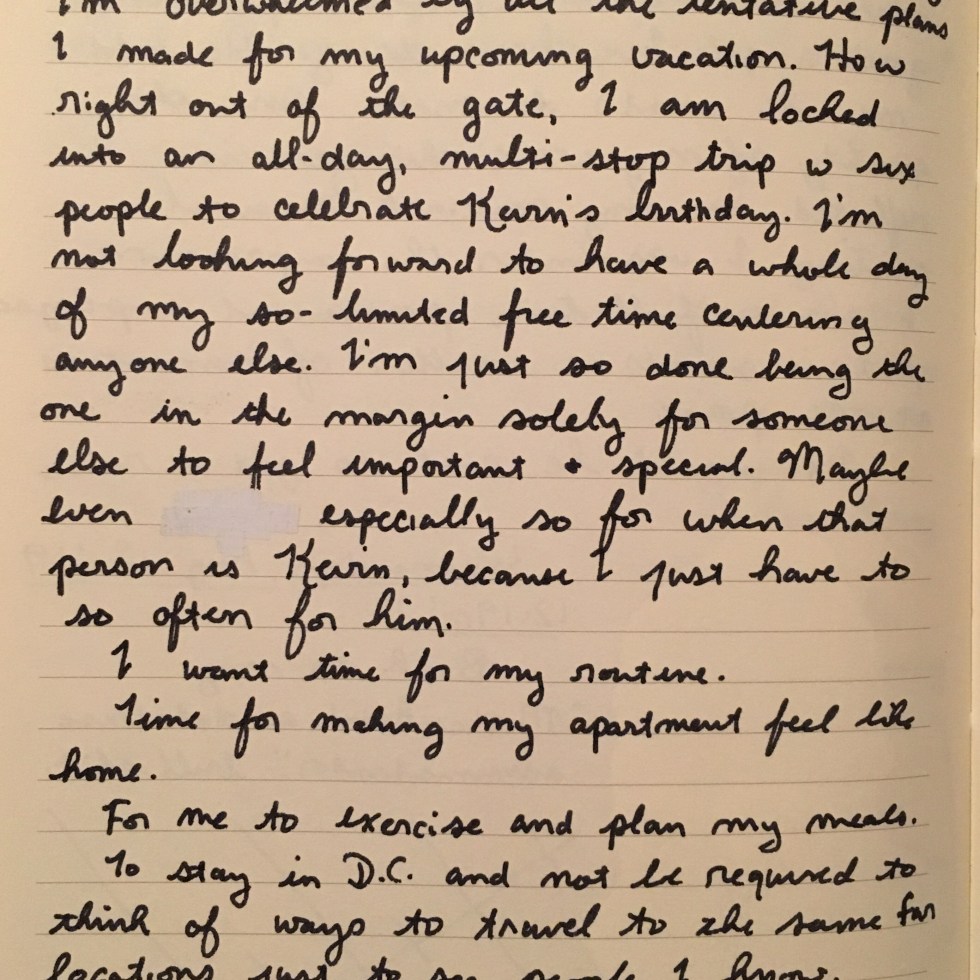 I'm overwhelmed by all the tentative plans
I made for my upcoming vacation. How
right out of the gate, I am locked
into an all-day, multi-stop trip w six
people to celebrate Kevin's birthday. I'm
not looking forward to have a whole day
of my so-limited free time centering
anyone else. I'm just so done being the
one in the margin solely for someone
else to feel important + special. Maybe
even especially so for when that
person is Kevin, because I just have to
so often for him.
I want time for my routine.
Time for making my apartment feel like
home.
For me to exercise and plan my meals.
To stay in D.C. and not be required to
think of ways to travel to the same far
locations just to see people I know.